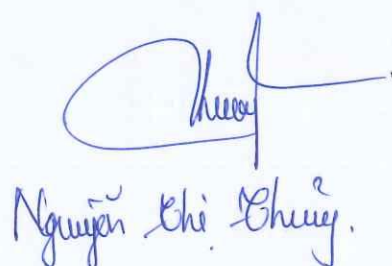 Thuỷ
Nguyễn Thị Thuỷ.